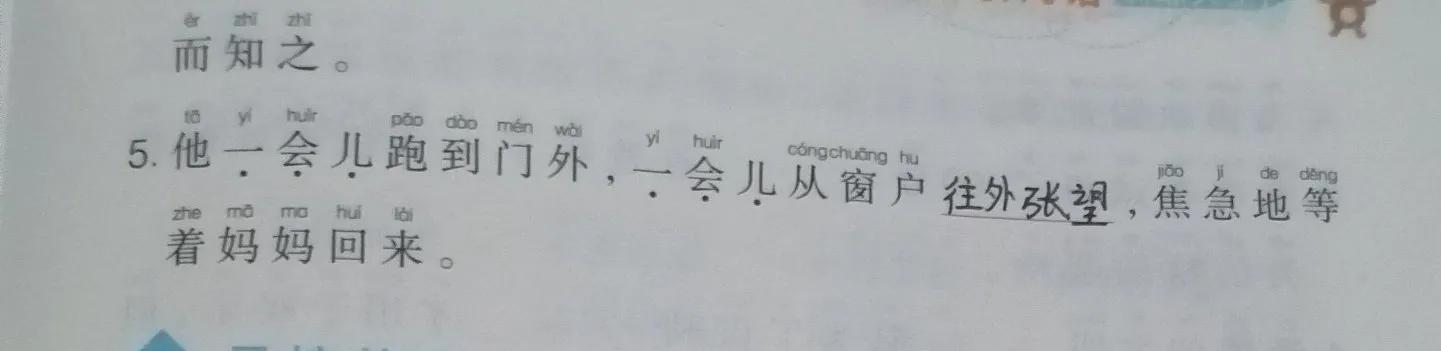 ér zhī zhī
而知之。
tā yí huìr pǎo dào mén wài yí huìr cóngchuāng hu jiāo jí de děng
5. 他一会儿跑到门外,一会儿从窗户往外张望,焦急地等
zhe mā ma huí lái
着妈妈回来。